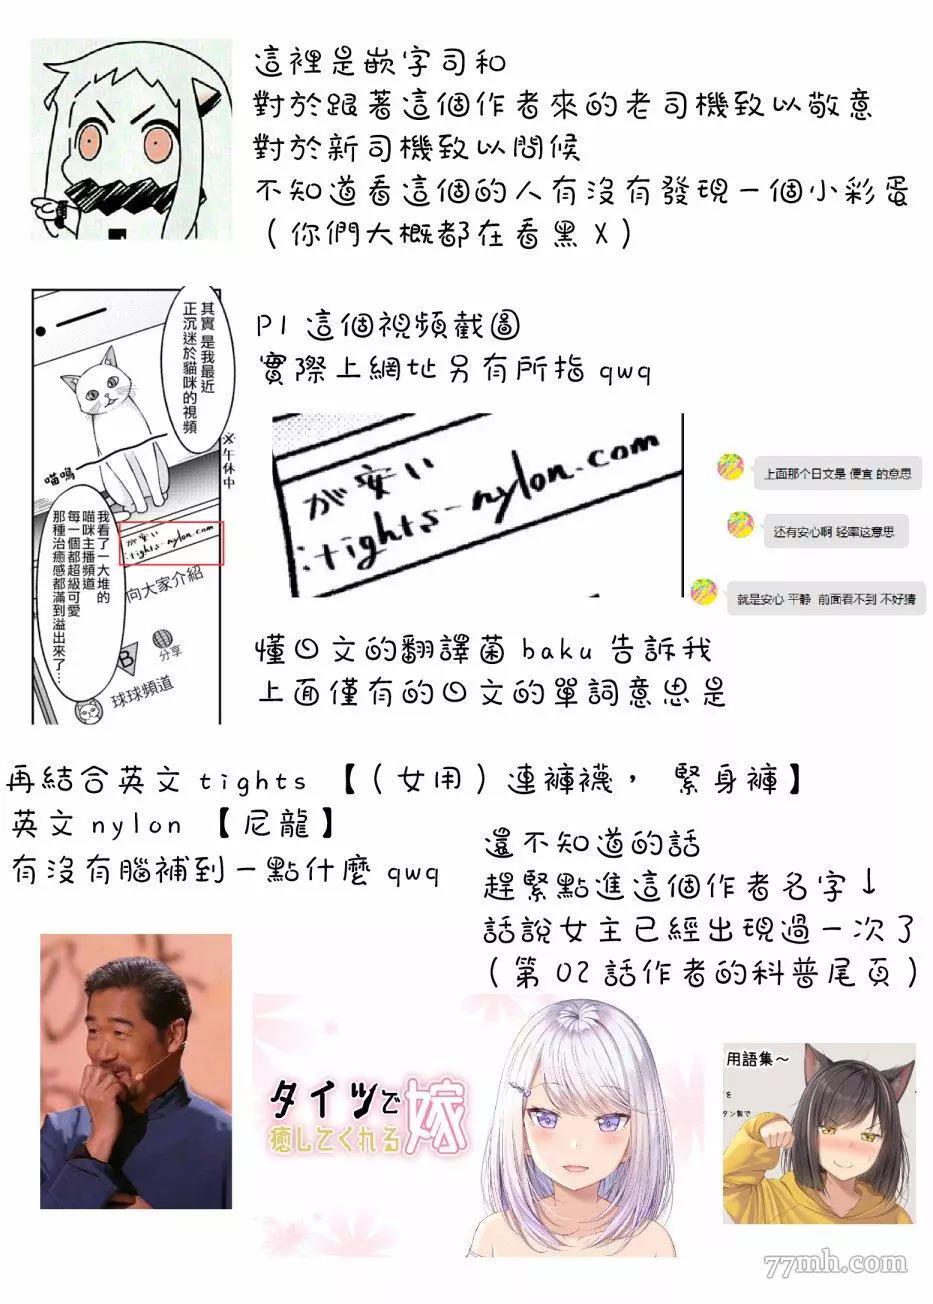 這裡是嵌字司和
對於跟著這個作者來的老司機致以敬意
對於新司機致以問候
不知道看這個的人有沒有發現一個小彩蛋
（你們大概都在看黑X）
其實 是我最近
正沉迷於貓咪的視頻
※午休中
喵嗚
我看了一大堆的
喵咪主播頻道
每一個都超級可愛
那種治癒感都滿到溢出來了…
が安い
:tights-nylon.com
向大家介紹
分享
B
球球頻道
P1 這個視頻截圖
實際上網址另有所指 qwq
が安い
:tights-nylon.com
上面那个日文是 便宜 的意思
还有安心啊 轻率这意思
就是安心 平静 前面看不到 不好猜
懂日文的翻譯菌 baku 告訴我
上面僅有的日文的單詞意思是
再結合英文 tights 【（女用）連褲襪， 緊身褲】
英文 nylon 【尼龍】
有沒有腦補到一點什麼 qwq
還不知道的話
趕緊點進這個作者名字↓
話說女主已經出現過一次了
（第 02 話作者的科普尾頁）
タイツで
癒してくれる嫁
用語集～
を
タン製で
77mh.com